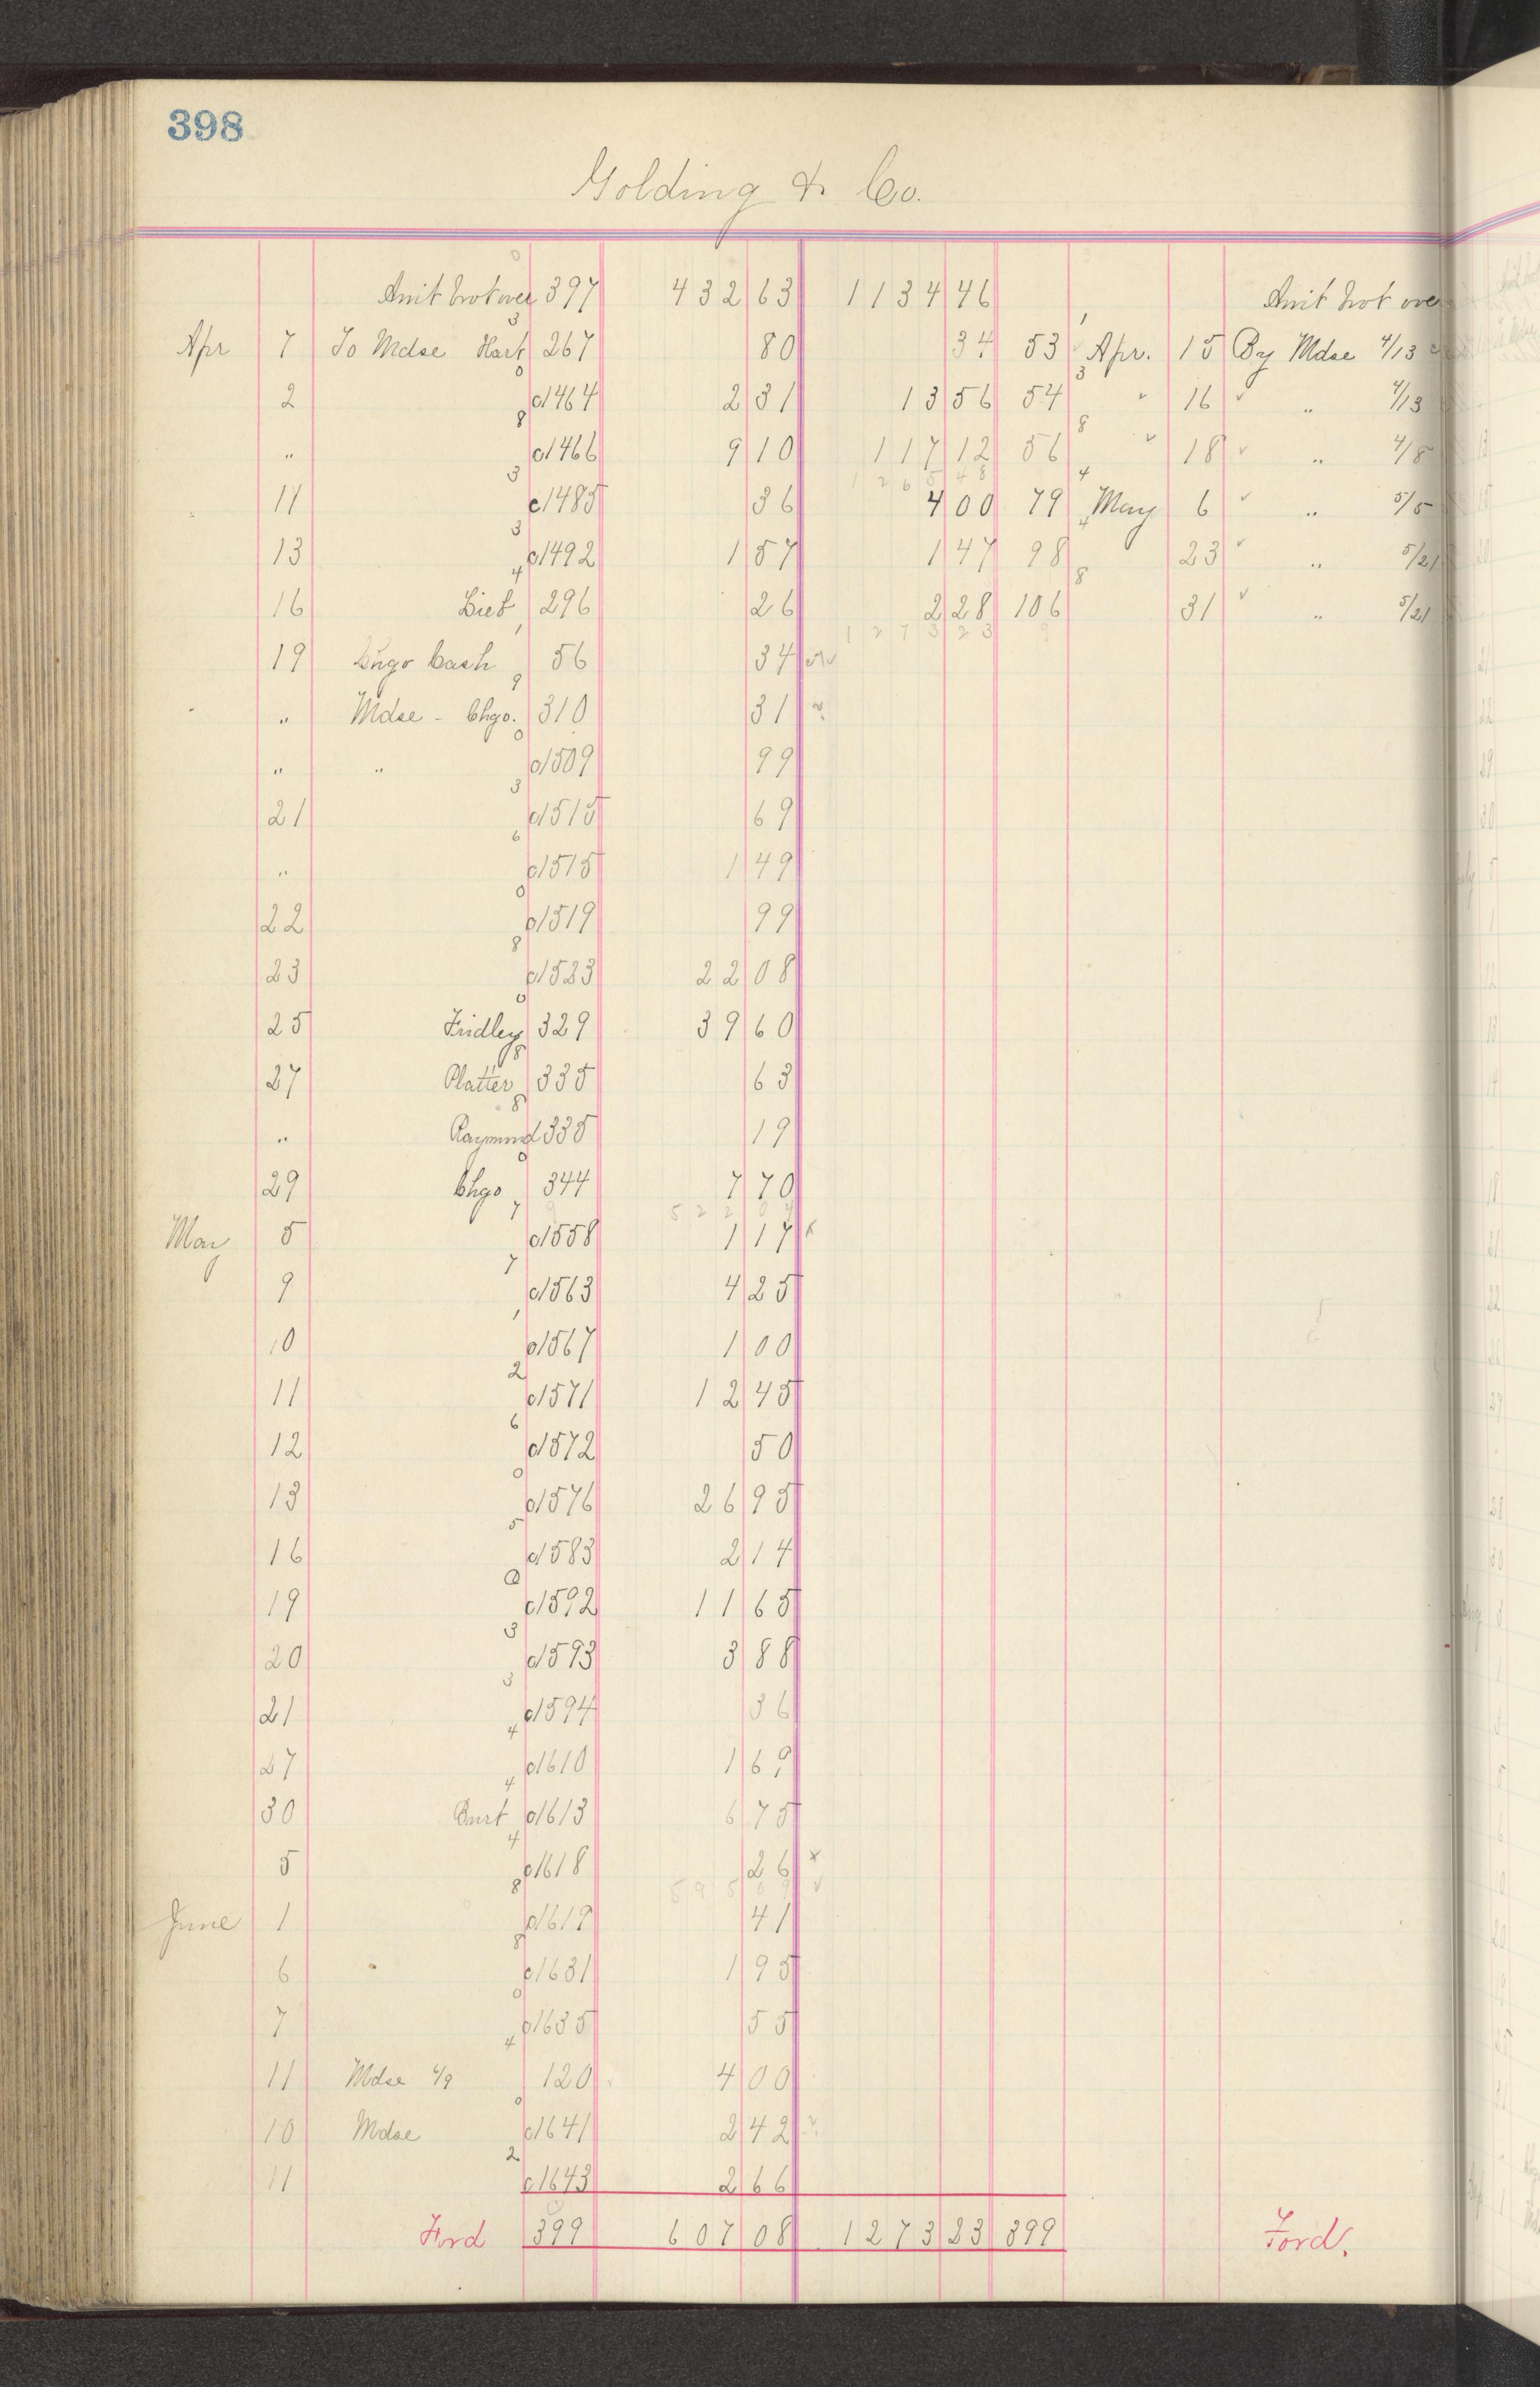 398
Golding & Co.
Amt brot over 397 432 63 1134 46 Amt brot over
Apr 7 To Mdse Hart 267 80 34 53 Apr. 15 By Mdse 4/13
2 c1464 2 31 13 56 54 " 16 " 4/13
" c1466 9 10 117 12 56 " 18 " 4/8
1265 48
11 c1485 36 4 00 79 May 6 " 5/5
13 c1492 1 57 1 47 98 23 " 5/21
16 Lieb 296 26 2 28 106 31 " 5/21
1273 23
19 Chgo Cash 56 34
" Mdse - Chgo. 310 31
" " c1509 99
21 c1515 69
" c1515 1 49
22 c1519 99
23 c1523 22 08
25 Fridley 329 39 60
27 Platter 335 63
" Raymond 335 19
29 Chgo 344 7 70
522 04
May 5 c1558 1 17
9 c1563 4 25
10 c1567 1 00
11 c1571 12 45
12 c1572 50
13 c1576 26 95
16 c1583 2 14
19 c1592 11 65
20 c1593 3 88
21 c1594 36
27 c1610 1 69
30 Burt c1613 6 75
5 c1618 26
595 09
June 1 c1619 41
6 c1631 1 95
7 c1635 55
11 Mdse 6/9 120 4 00
10 Mdse c1641 2 42
11 c1643 2 66
Ford 399 607 08 1273 23 399 Ford.